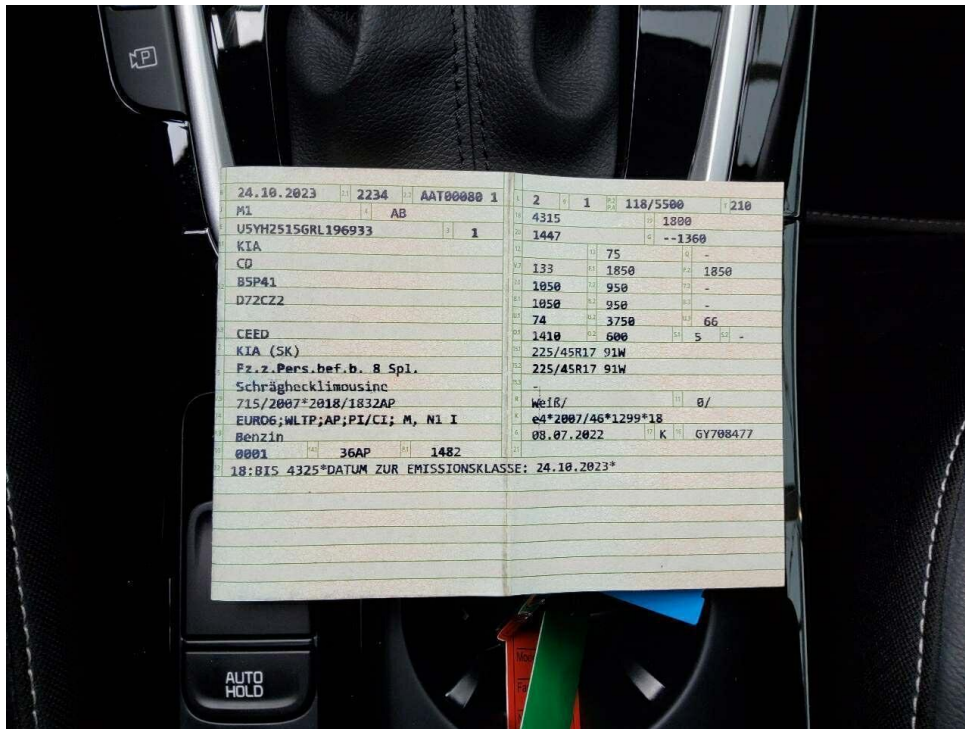 P
24.10.2023 2.1 2234 AAT00080 1
M1 AB
U5YH2515GRL196933 3 1
KIA
CD
B5P41
D72CZ2
CEED
KIA (SK)
Fz.z.Pers.bef.b. 8 Spl.
Schräghecklimousine
715/2007*2018/1832AP
EURO6;WLTP;AP;PI/CI; M, N1 I
Benzin
0001 36AP 1482
18:BIS 4325*DATUM ZUR EMISSIONSKLASSE: 24.10.2023*
2 1 118/5500 T 210
4315 1800
1447 G --1360
75 Q -
133 1850 1850
1050 950 -
1050 950 -
74 3750 66
1410 600 5 -
225/45R17 91W
225/45R17 91W
-
Weiß/ 0/
e4*2007/46*1299*18
08.07.2022 K GY708477
AUTO
HOLD